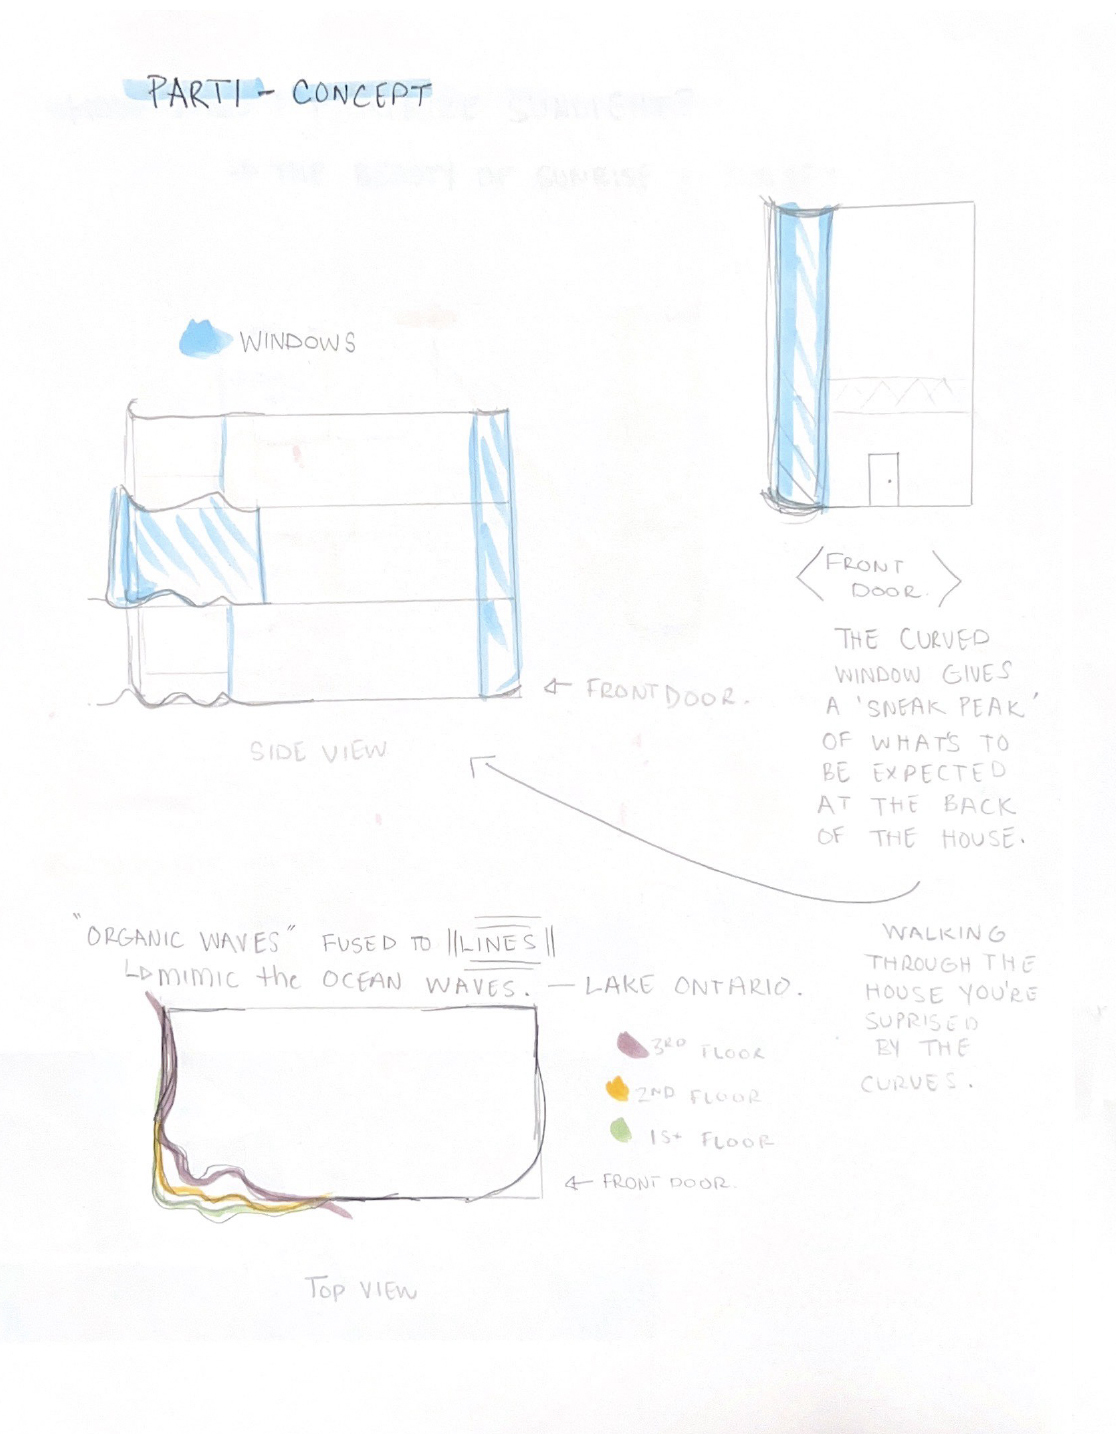 PARTI - CONCEPT
WINDOWS
← FRONT DOOR.
SIDE VIEW
FRONT
DOOR.
THE CURVED
WINDOW GIVES
A 'SNEAK PEAK'
OF WHAT'S TO
BE EXPECTED
AT THE BACK
OF THE HOUSE.
WALKING
THROUGH THE
HOUSE YOU'RE
SUPRISED
BY THE
CURVES.
"ORGANIC WAVES" FUSED TO ||LINES||
↳ MIMIC the OCEAN WAVES. — LAKE ONTARIO.
3RD FLOOR
2ND FLOOR
1St FLOOR
← FRONT DOOR.
TOP VIEW